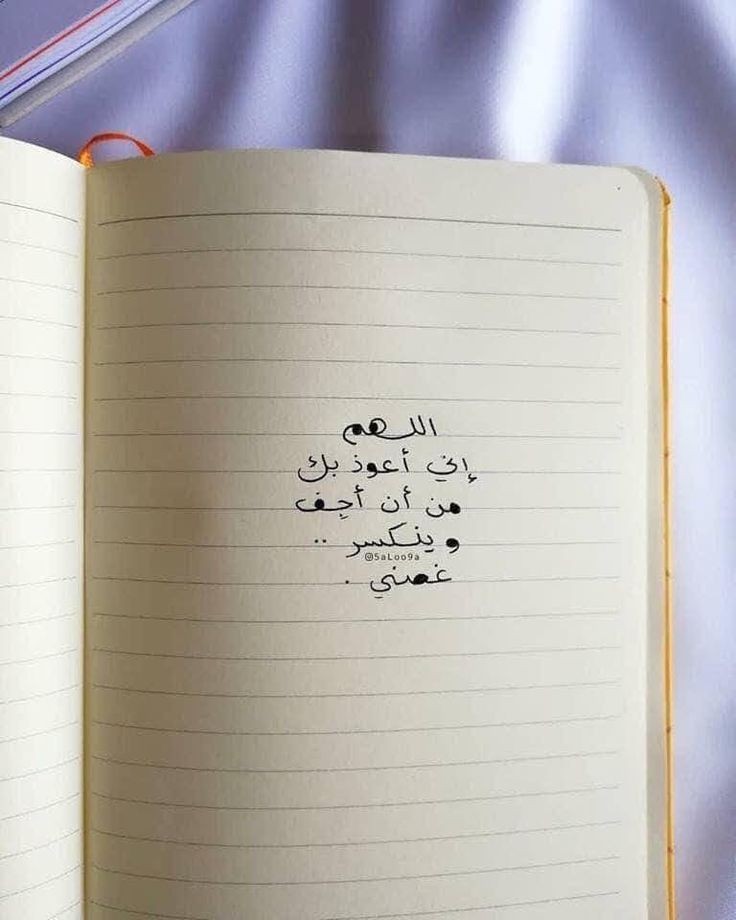 اللهم
إني أعوذ بك
من أن أجِف
و ينكسر ..
@5aLoo9a
غصني .